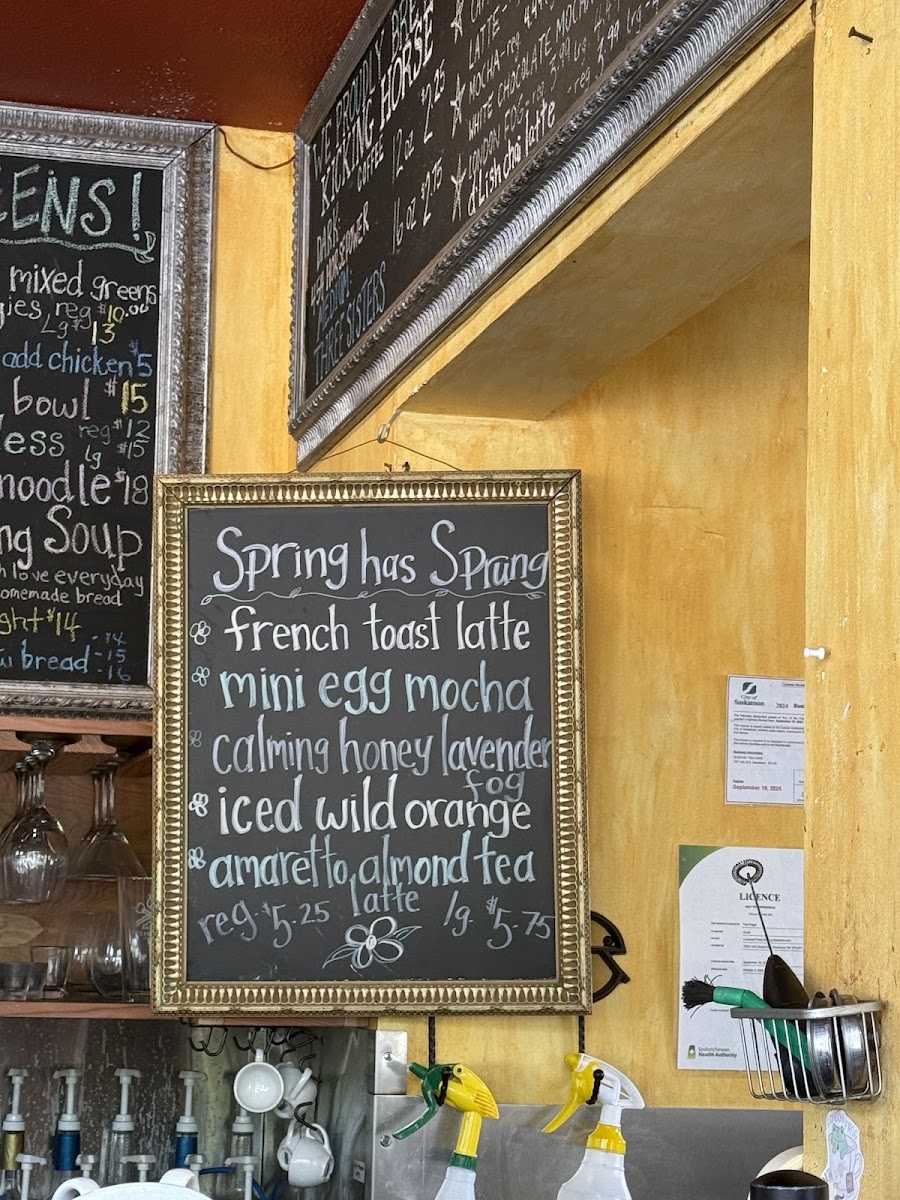 EENS!
mixed greens
gies reg $10.00
Lg $13
add chicken $5
bowl $15
less reg $12
lg $15
noodle $18
ng Soup
love everyday
homemade bread
ght $14
bread -15
-14
-16
KICKING HORSE
COFFEE
DARK:
MEDIUM:
THREE SISTERS
12 oz $2.25
16 oz $2.75
LATTE
MOCHA-reg
WHITE CHOCOLATE MOCHA
LONDON FOG
d'lish chai latte
Spring has Sprung
french toast latte
mini egg mocha
calming honey lavender
fog
iced wild orange
amaretto almond tea
latte
reg $5.25 lg. $5.75
City of
Saskatoon
2024
September 18, 2025
LICENCE
Saskatchewan
Health Authority